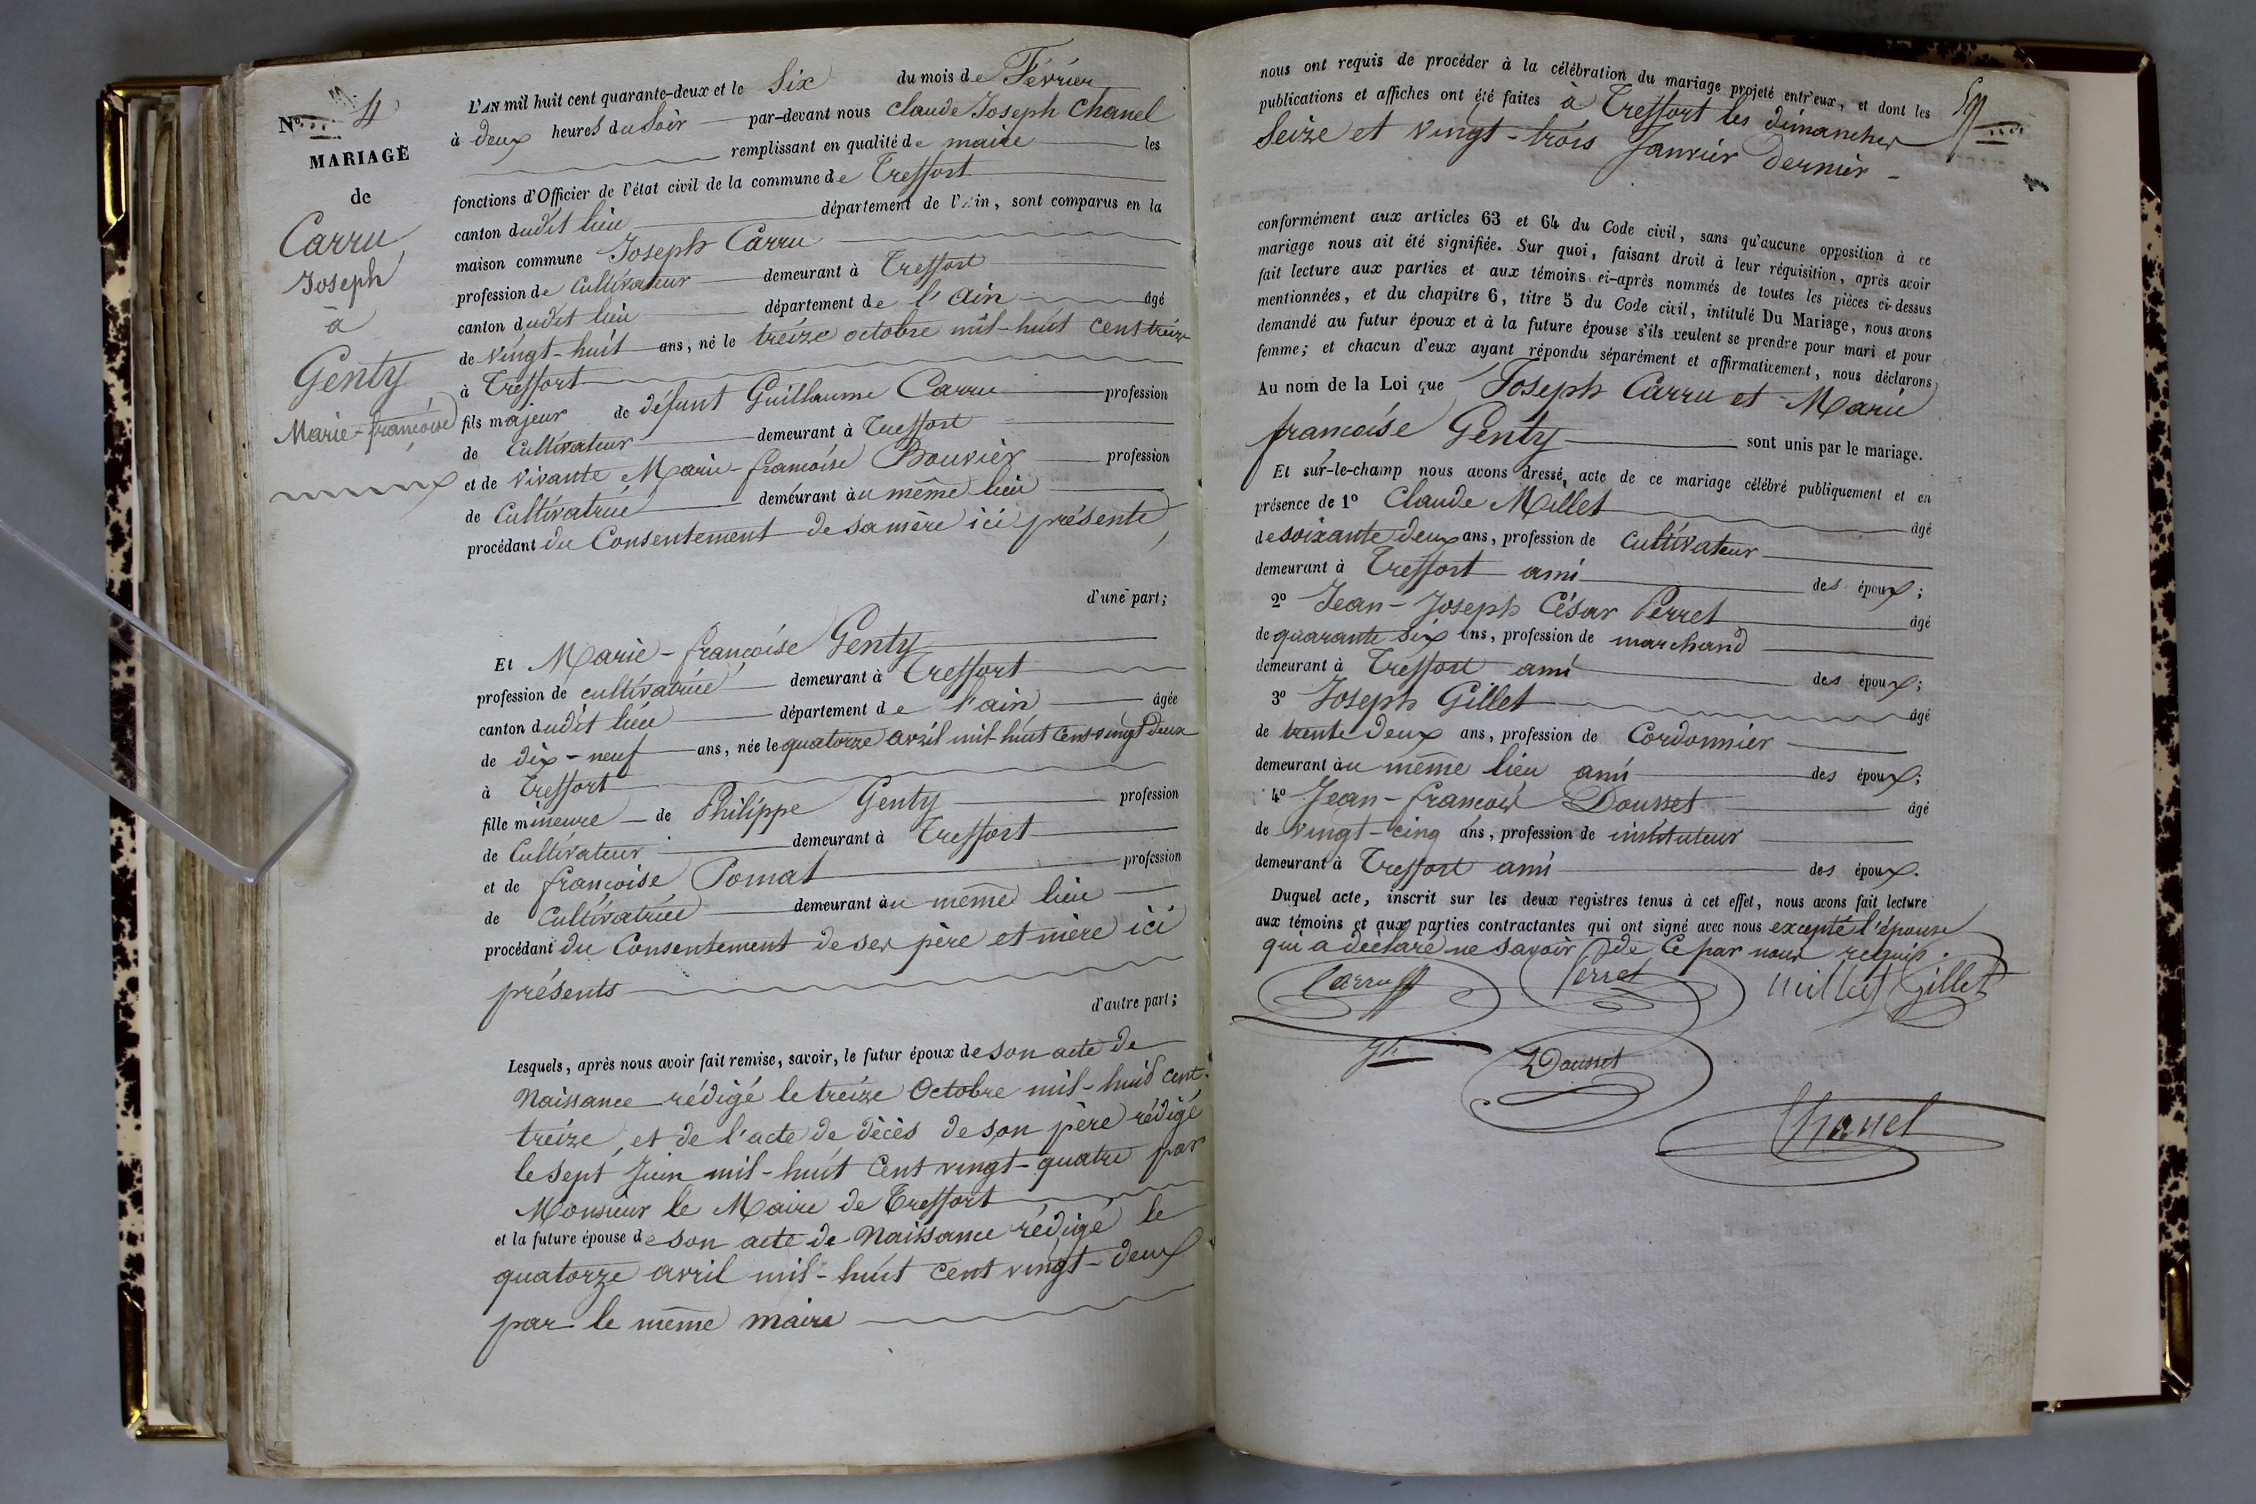 N° 4
MARIAGE
de
Carru
Joseph
à
Genty
Marie-francoise
L'AN mil huit cent quarante-deux et le Six du mois de Février
à deux heures du Soir par-devant nous Claude Joseph Chanel
remplissant en qualité de maire les
fonctions d'Officier de l'état civil de la commune de Treffort
canton dudit lieu département de l'Ain, sont comparus en la
maison commune Joseph Carru
profession de Cultivateur demeurant à Treffort
canton dudit lieu département de l'ain âgé
de vingt-huit ans, né le treize octobre mil-huit cent treize
à Treffort
fils majeur de défunt Guillaume Carru profession
de Cultivateur demeurant à Treffort
et de vivante Marie-francoise Bouvier profession
de Cultivatrice demeurant au même lieu
procédant du Consentement de sa mère ici présente,
d'une part;
Et Marie-francoise Genty
profession de cultivatrice demeurant à Treffort
canton dudit lieu département de l'ain âgée
de dix-neuf ans, née le quatorze avril mil-huit cent vingt deux
à Treffort
fille mineure de Philippe Genty profession
de Cultivateur demeurant à Treffort
et de françoise Pomat profession
de Cultivatrice demeurant au même lieu
procédant du Consentement de ses père et mère ici
présents
d'autre part;
Lesquels, après nous avoir fait remise, savoir, le futur époux de son acte de
Naissance rédigé le treize Octobre mil-huit cent-
treize, et de l'acte de décès de son père rédigé
le sept Juin mil-huit Cent vingt-quatre par
Monsieur le Maire de Treffort
et la future épouse de son acte de Naissance rédigé le
quatorze avril mil-huit cent vingt-deux
par le même maire
nous ont requis de procéder à la célébration du mariage projeté entr'eux, et dont les
publications et affiches ont été faites à Treffort les dimanches
Seize et vingt-trois Janvier dernier -
conformément aux articles 63 et 64 du Code civil, sans qu'aucune opposition à ce
mariage nous ait été signifiée. Sur quoi, faisant droit à leur réquisition, après avoir
fait lecture aux parties et aux témoins ci-après nommés de toutes les pièces ci-dessus
mentionnées, et du chapitre 6, titre 5 du Code civil, intitulé Du Mariage, nous avons
demandé au futur époux et à la future épouse s'ils veulent se prendre pour mari et pour
femme; et chacun d'eux ayant répondu séparément et affirmativement, nous déclarons
Au nom de la Loi que Joseph Carru et Marie
francoise Genty sont unis par le mariage.
Et sur-le-champ nous avons dressé acte de ce mariage célébré publiquement et en
présence de 1° Claude Millet âgé
de soixante deux ans, profession de Cultivateur
demeurant à Treffort ami des époux;
2° Jean-Joseph César Perret âgé
de quarante six ans, profession de marchand
demeurant à Treffort ami des époux;
3° Joseph Gillet âgé
de trente deux ans, profession de Cordonnier
demeurant au même lieu ami des époux;
4° Jean-francois Dousset âgé
de vingt-cinq ans, profession de instituteur
demeurant à Treffort ami des époux.
Duquel acte, inscrit sur les deux registres tenus à cet effet, nous avons fait lecture
aux témoins et aux parties contractantes qui ont signé avec nous excepté l'épouse
qui a déclaré ne savoir de Ce par nous requis.
Carru Perret Millet Gillet
Dousset
Chanel